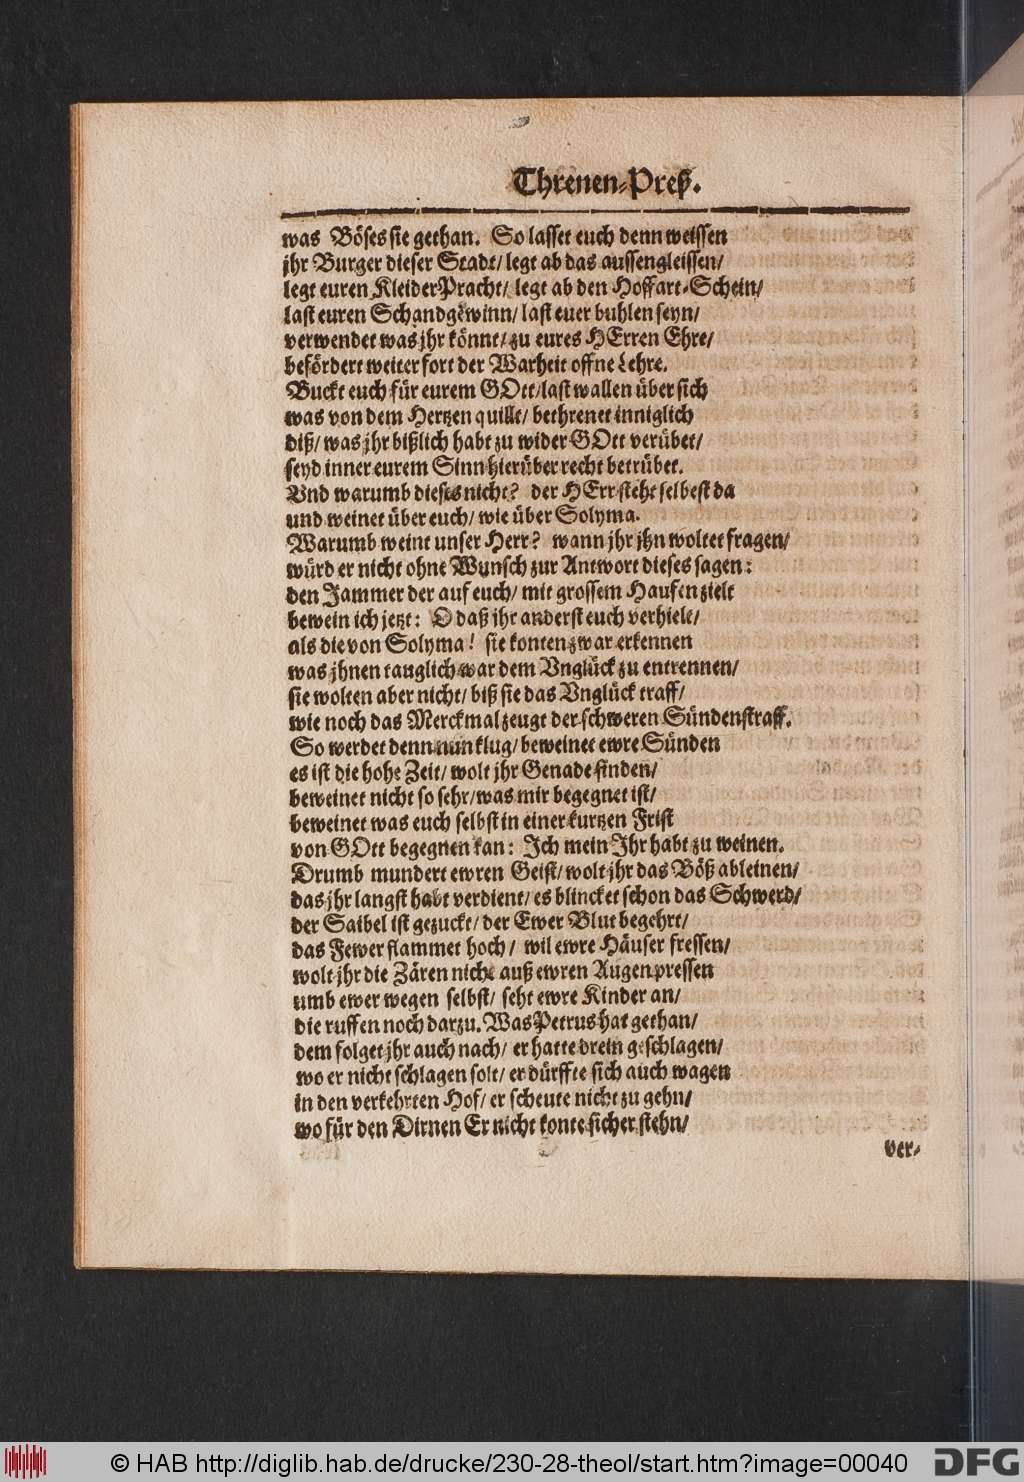 Threnen-Preß.
was Böses sie gethan. So lasset euch denn weissen
jhr Burger dieser Stadt/ legt ab das aussengleissen/
legt euren KleiderPracht/ legt ab den Hoffart-Schein/
last euren Schandgewinn/ last euer buhlen seyn/
verwendet was jhr könnt/ zu eures HErren Ehre/
befördert weiter fort der Warheit offne Lehre.
Buckt euch für eurem GOtt/ last wallen über sich
was von dem Hertzen quillt/ bethrenet inniglich
diß/ was jhr bißlich habt zu wider GOtt verübet/
seyd inner eurem Sinn hierüber recht betrübet.
Vnd warumb dieses nicht? der HErr steht selbest da
und weinet über euch/ wie über Solyma.
Warumb weint unser Herr? wann jhr jhn woltet fragen/
würd er nicht ohne Wunsch zur Antwort dieses sagen:
den Jammer der auf euch/ mit grossem Haufen zielt
bewein ich jetzt: O daß jhr anderst euch verhielt/
als die von Solyma! sie konten zwar erkennen
was jhnen tauglich war dem Vnglück zu entrennen/
sie wolten aber nicht/ biß sie das Vnglück traff/
wie noch das Merckmal zeugt der schweren Sündenstraff.
So werdet denn nun klug/ beweinet ewre Sünden
es ist die hohe Zeit/ wolt jhr Genade finden/
beweinet nicht so sehr/ was mir begegnet ist/
beweinet was euch selbst in einer kurtzen Frist
von GOtt begegnen kan: Ich mein Ihr habt zu weinen.
Drumb mundert ewren Geist/ wolt jhr das Böß ableinen/
das jhr langst habt verdient/ es blincket schon das Schwerd/
der Saibel ist gezuckt/ der Ewer Blut begehrt/
das Fewer flammet hoch/ wil ewre Häuser fressen/
wolt jhr die Zären nicht auß ewren Augen pressen
umb ewer wegen selbst/ seht ewre Kinder an/
die ruffen noch darzu. Was Petrus hat gethan/
dem folget jhr auch nach/ er hatte drein geschlagen/
wo er nicht schlagen solt/ er dürffte sich auch wagen
in den verkehrten Hof/ er scheute nicht zu gehn/
wo für den Dirnen Er nicht konte sicher stehn/
ver-
© HAB http://diglib.hab.de/drucke/230-28-theol/start.htm?image=00040
DFG